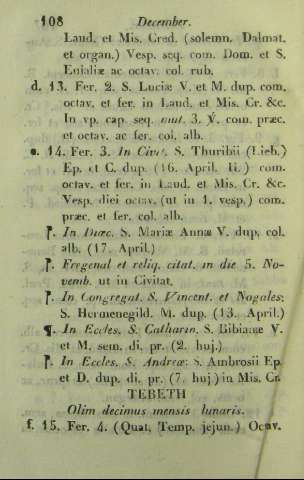 108 December.
Laud. et Mis. Cred. (solemn. Dalmat.
et organ.) Vesp. seq. com. Dom. et S.
Eulaliæ ac octav. col. rub.
d. 13. Fer. 2. S. Luciæ V. et M. dup. com.
octav. et fer. in Laud. et Mis. Cr. &c.
In vp. cap. seq. mut. 3. ℣. com. præc.
et octav. ac fer. col. alb.
e. 14. Fer. 3. In Civit. S. Thuribii (Lieb.)
Ep. et C. dup. (16. April. H.) com.
octav. et fer. in Laud. et Mis. Cr. &c.
Vesp. diei octav. (ut in 1. vesp.) com.
præc. et fer. col. alb.
¶. In Diæc. S. Mariæ Annæ V. dup. col.
alb. (17. April.)
¶. Fregenal et reliq. citat. in die 5. No-
vemb. ut in Civitat.
¶. In Congregat. S. Vincent. et Nogales:
S. Hermenegild. M. dup. (13. April.)
¶. In Eccles. S. Catharin. S. Bibianæ V.
et M. sem. di. pr. (2. huj.)
¶. In Eccles. S. Andreæ: S. Ambrosii Ep.
et D. dup. di. pr. (7. huj.) in Mis. Cr.
TEBETH
Olim decimus mensis lunaris.
f. 15. Fer. 4. (Quat. Temp. jejun.) Octav.